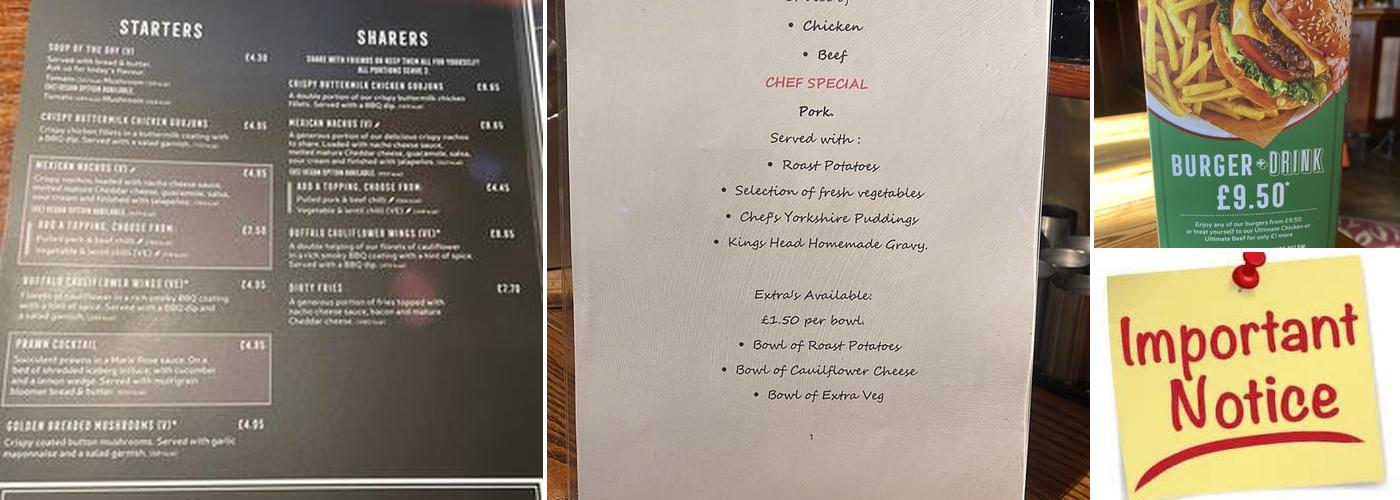 STARTERS
SOUP OF THE DAY (V) £4.30
Served with bread & butter.
Ask us for today's flavour.
Tomato Mushroom
(VE) VEGAN OPTION AVAILABLE.
Tomato Mushroom
CRISPY BUTTERMILK CHICKEN GOUJONS £4.95
Crispy chicken fillets in a buttermilk coating with
a BBQ dip. Served with a salad garnish.
MEXICAN NACHOS (V) £4.95
Crispy nachos, loaded with nacho cheese sauce,
melted mature Cheddar cheese, guacamole, salsa,
sour cream and finished with jalapeños.
(VE) VEGAN OPTION AVAILABLE.
ADD A TOPPING, CHOOSE FROM: £2.50
Pulled pork & beef chilli
Vegetable & lentil chilli (VE)
BUFFALO CAULIFLOWER WINGS (VE)* £4.95
Florets of cauliflower in a rich smoky BBQ coating
with a hint of spice. Served with a BBQ dip and
a salad garnish.
PRAWN COCKTAIL £4.95
Succulent prawns in a Marie Rose sauce. On a
bed of shredded iceberg lettuce, with cucumber
and a lemon wedge. Served with multigrain
bloomer bread & butter.
GOLDEN BREADED MUSHROOMS (V)* £4.95
Crispy coated button mushrooms. Served with garlic
mayonnaise and a salad garnish.
SHARERS
SHARE WITH FRIENDS OR KEEP THEM ALL FOR YOURSELF!
ALL PORTIONS SERVE 2.
CRISPY BUTTERMILK CHICKEN GOUJONS
A double portion of our crispy buttermilk chicken
fillets. Served with a BBQ dip.
MEXICAN NACHOS (V)
A generous portion of our delicious crispy nachos
to share. Loaded with nacho cheese sauce,
melted mature Cheddar cheese, guacamole, salsa,
sour cream and finished with jalapeños.
(VE) VEGAN OPTION AVAILABLE.
ADD A TOPPING, CHOOSE FROM: £4.45
Pulled pork & beef chilli
Vegetable & lentil chilli (VE)
BUFFALO CAULIFLOWER WINGS (VE)*
A double helping of our florets of cauliflower
in a rich smoky BBQ coating with a hint of spice.
Served with a BBQ dip.
DIRTY FRIES £7.70
A generous portion of fries topped with
nacho cheese sauce, bacon and mature
Cheddar cheese.
• Chicken
• Beef
CHEF SPECIAL
Pork.
Served with :
• Roast Potatoes
• Selection of fresh vegetables
• Chef's Yorkshire Puddings
• Kings Head Homemade Gravy.
Extra's Available:
£1.50 per bowl.
• Bowl of Roast Potatoes
• Bowl of Cauilflower Cheese
• Bowl of Extra Veg
1
BURGER + DRINK
£9.50*
Enjoy any of our burgers from £9.50
or treat yourself to our Ultimate Chicken or
Ultimate Beef for only £1 more
Important
Notice